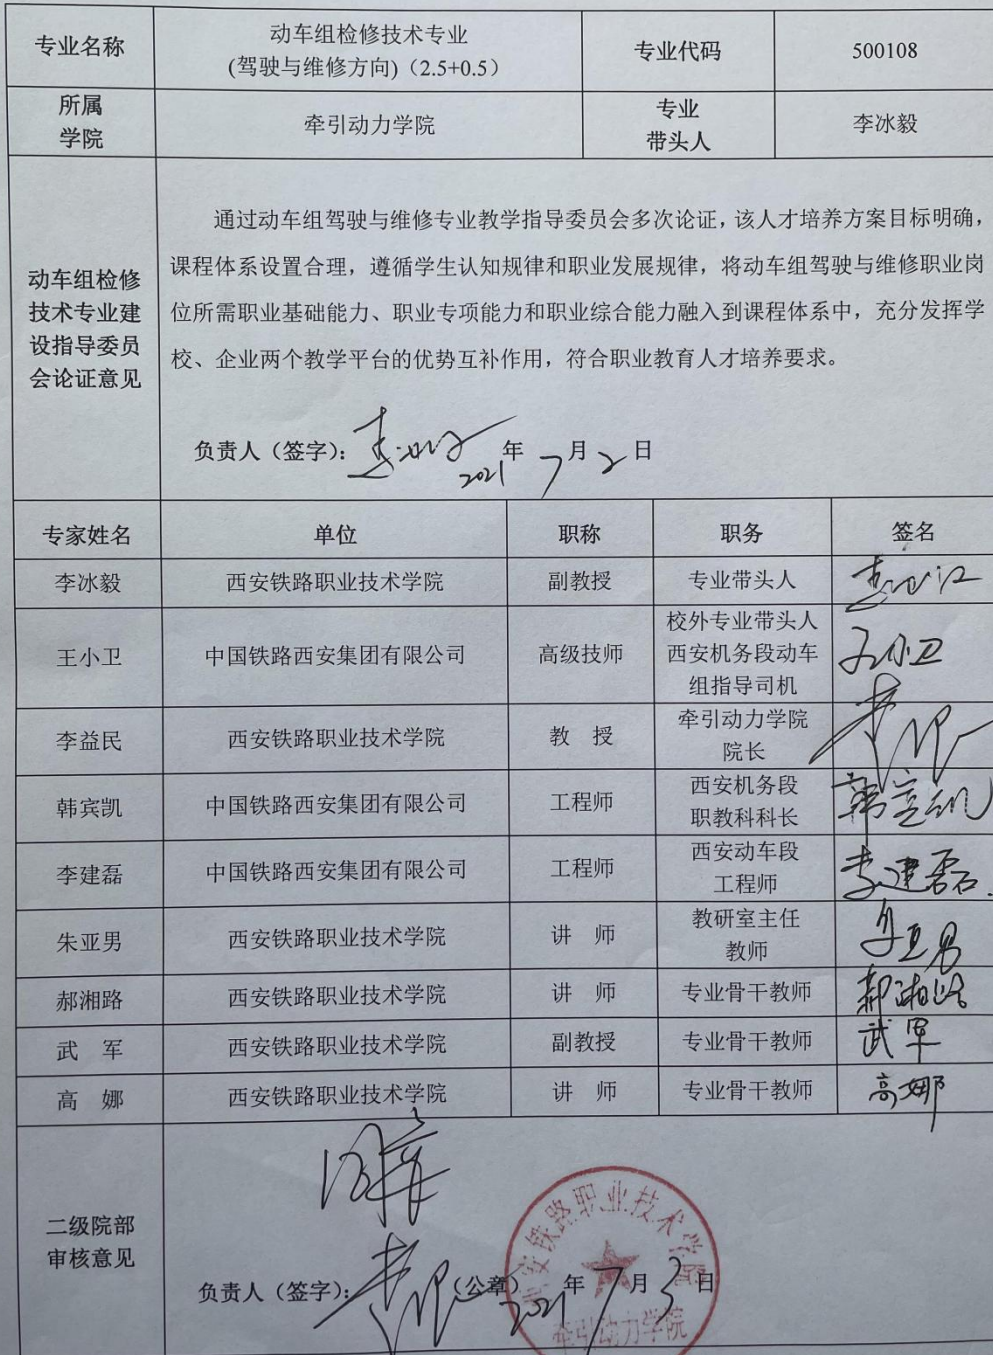 专业名称 动车组检修技术专业 (驾驶与维修方向)（2.5+0.5） 专业代码 500108
所属学院 牵引动力学院 专业带头人 李冰毅
动车组检修
技术专业建
设指导委员
会论证意见
通过动车组驾驶与维修专业教学指导委员会多次论证，该人才培养方案目标明确，
课程体系设置合理，遵循学生认知规律和职业发展规律，将动车组驾驶与维修职业岗
位所需职业基础能力、职业专项能力和职业综合能力融入到课程体系中，充分发挥学
校、企业两个教学平台的优势互补作用，符合职业教育人才培养要求。
负责人（签字）： 2021年7月2日
专家姓名 单位 职称 职务 签名
李冰毅 西安铁路职业技术学院 副教授 专业带头人
王小卫 中国铁路西安集团有限公司 高级技师 校外专业带头人 西安机务段动车组指导司机 王小卫
李益民 西安铁路职业技术学院 教 授 牵引动力学院院长
韩宾凯 中国铁路西安集团有限公司 工程师 西安机务段职教科科长 韩宾凯
李建磊 中国铁路西安集团有限公司 工程师 西安动车段工程师 李建磊
朱亚男 西安铁路职业技术学院 讲 师 教研室主任 教师 朱亚男
郝湘路 西安铁路职业技术学院 讲 师 专业骨干教师 郝湘路
武 军 西安铁路职业技术学院 副教授 专业骨干教师 武军
高 娜 西安铁路职业技术学院 讲 师 专业骨干教师 高娜
二级院部
审核意见
同意
负责人（签字）： （公章） 2021年7月3日
西安铁路职业技术学院
牵引动力学院